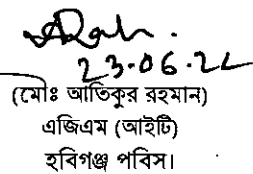 23-06-22
(মোঃ আতিকুর রহমান)
এজিএম (আইটি)
হবিগঞ্জ পবিস।